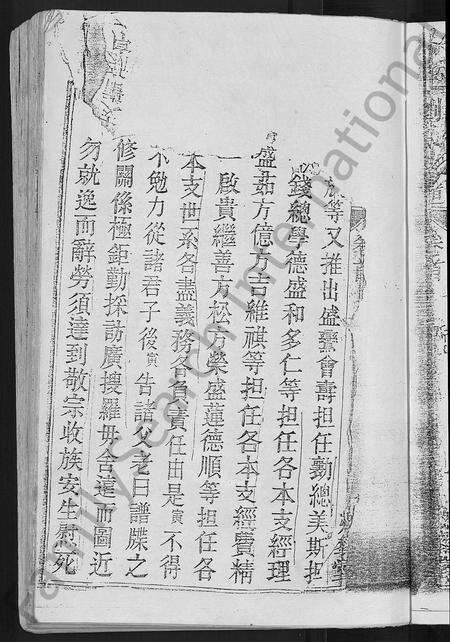 放等又推出盛爨會壽担任勷總美斯担
錢總學德盛和多仁等担任各本支經理
盛茹方億方吉維祺等担任各本支經賣精
一啟貴繼善方松方榮盛蓮德順等担任各
本支世系各盡義務各負責任由是寅不得
不勉力從諸君子後寅告諸父老曰譜牒之
修關係極鉅勤採訪廣搜羅毋舍遠而圖近
勿就逸而辭勞須達到敬宗收族安生慰死
FamilySearch International